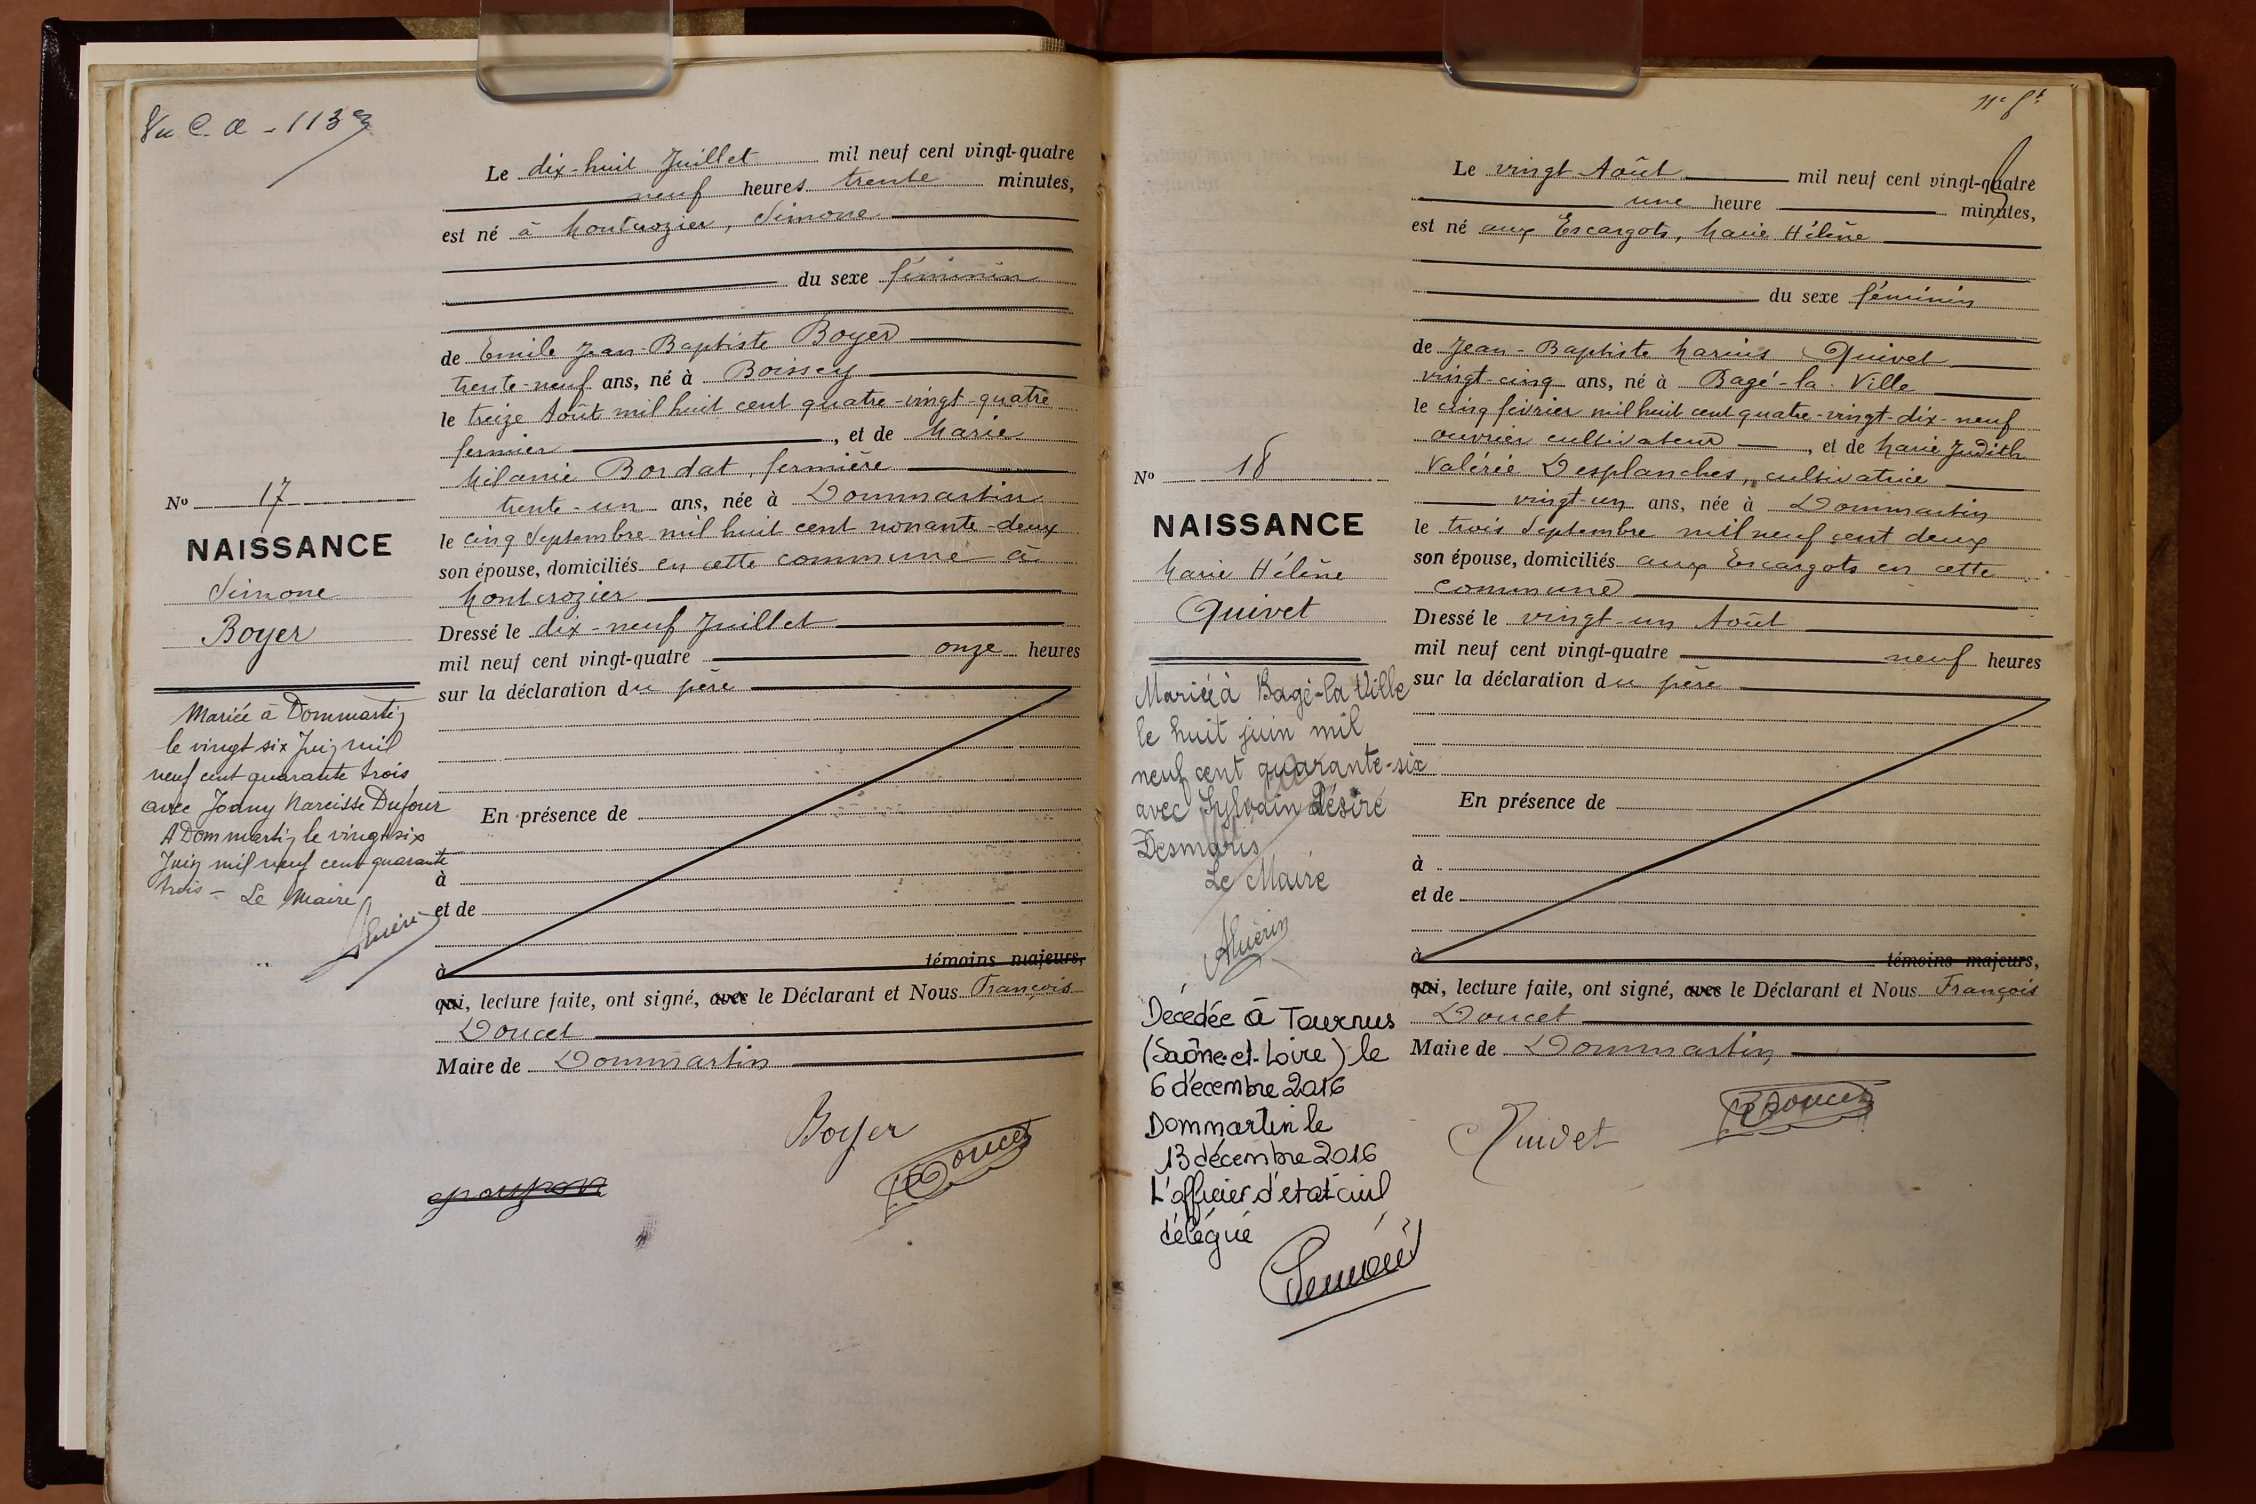 Vu C. a - 113
Le dix-huit Juillet mil neuf cent vingt-quatre
neuf heures trente minutes,
est né à Montcrozier, Simone
du sexe féminin
de Emile Jean-Baptiste Boyer
trente-neuf ans, né à Boissey
le treize Août mil huit cent quatre-vingt-quatre
fermier, et de Marie
Mélanie Bordat, fermière
trente-un ans, née à Dommartin
le cinq Septembre mil huit cent nonante-deux
son épouse, domiciliés en cette commune à
Montcrozier
Dressé le dix-neuf Juillet
mil neuf cent vingt-quatre onze heures
sur la déclaration du père
En présence de
à
et de
à témoins majeurs,
qui, lecture faite, ont signé, avec le Déclarant et Nous François
Doucet
Maire de Dommartin
Boyer
Doucet
No 17
NAISSANCE
Simone
Boyer
Mariée à Dommartin
le vingt six Juin mil
neuf cent quarante trois
avec Joany Narcisse Dufour
A Dommartin le vingt six
Juin mil neuf cent quarante
trois - Le Maire
11e ft
Le vingt Août mil neuf cent vingt-quatre
une heure minutes,
est né aux Escargots, Marie Hélène
du sexe féminin
de Jean-Baptiste Marius Quivet
vingt-cinq ans, né à Bagé-la-Ville
le cinq février mil huit cent quatre-vingt-dix-neuf
ouvrier cultivateur, et de Marie Judith
Valérie Desplanches, cultivatrice
vingt-un ans, née à Dommartin
le trois Septembre mil neuf cent deux
son épouse, domiciliés aux Escargots en cette
commune
Dressé le vingt-un Août
mil neuf cent vingt-quatre neuf heures
sur la déclaration du père
En présence de
à
et de
à témoins majeurs,
qui, lecture faite, ont signé, avec le Déclarant et Nous François
Doucet
Maire de Dommartin
Quivet
Doucet
No 18
NAISSANCE
Marie Hélène
Quivet
Mariée à Bagé-la-Ville
le huit juin mil
neuf cent quarante-six
avec Sylvain Désiré
Desmaris
Le Maire
Décédée à Tournus
(Saône-et-Loire) le
6 décembre 2016
Dommartin le
13 décembre 2016
L'officier d'état civil
délégué